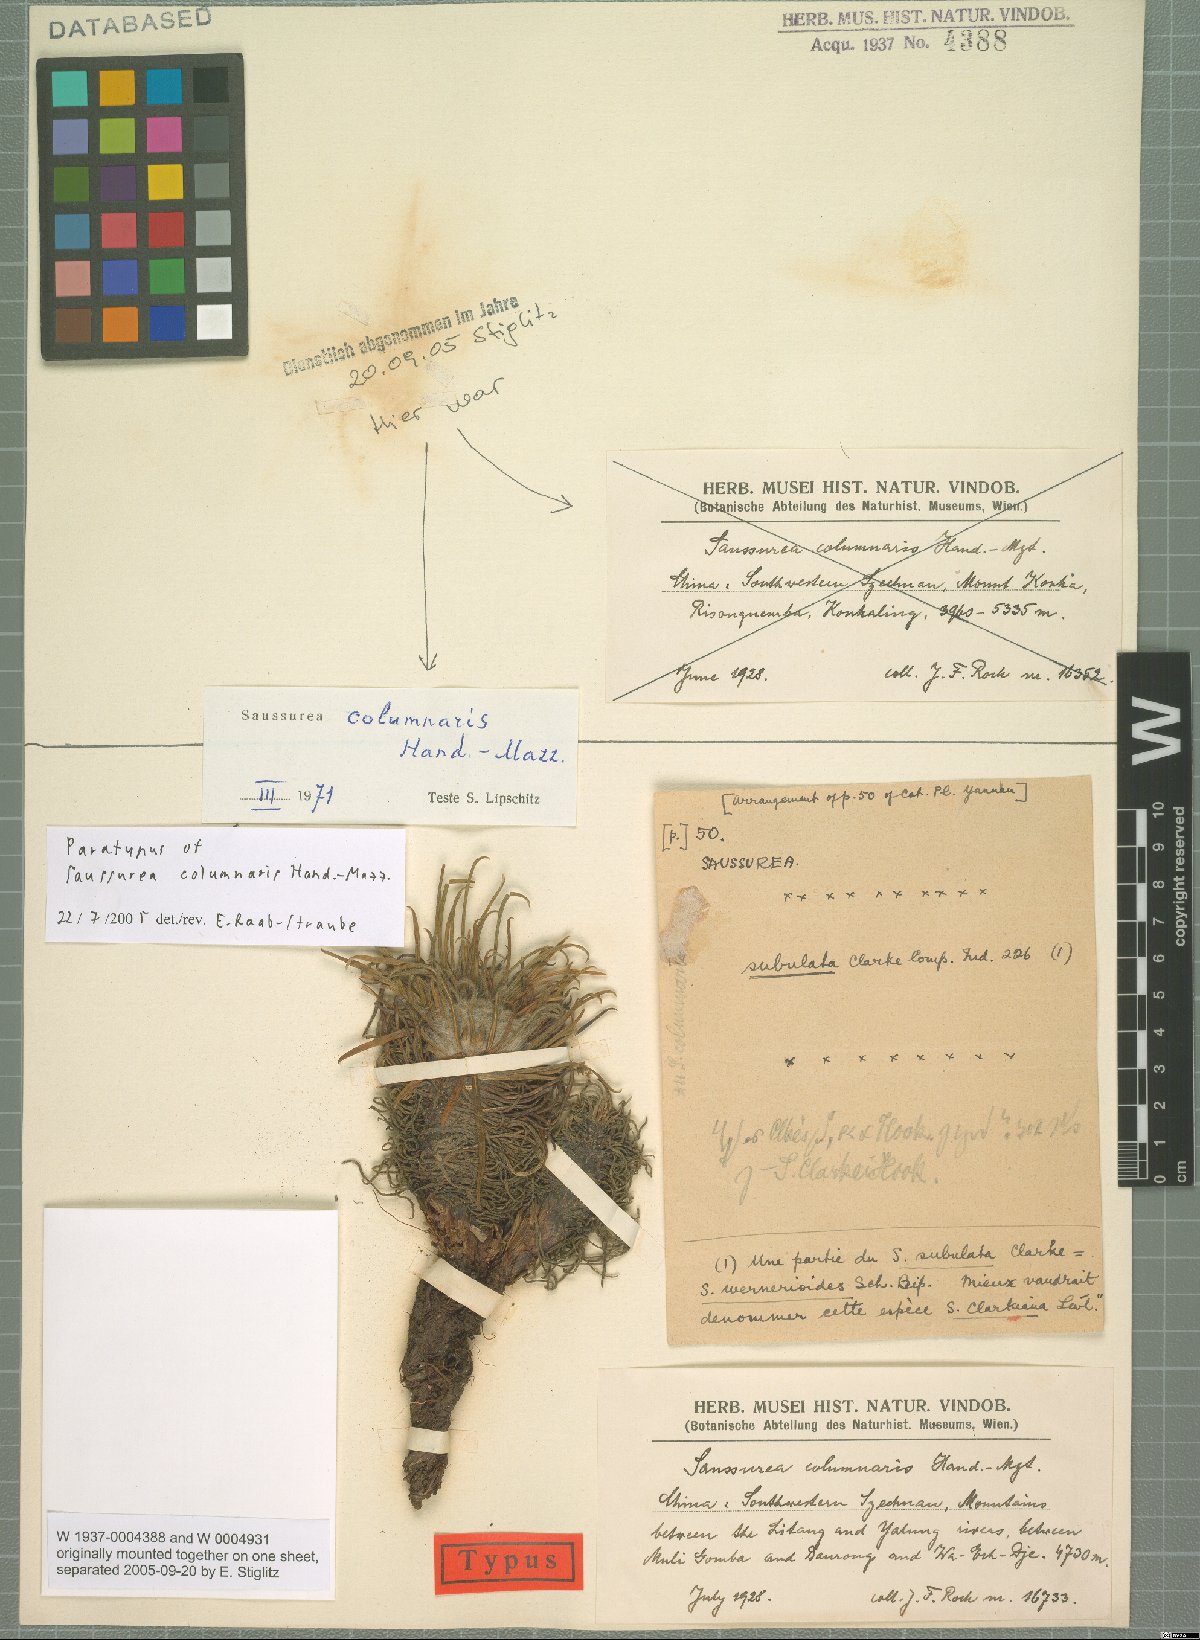 DATABASED
HERB. MUS. HIST. NATUR. VINDOB.
Acqu. 1937 No. 4388
Dienstlich abgenommen im Jahre
20.09.05 Stiglitz
Hier war
HERB. MUSEI HIST. NATUR. VINDOB.
(Botanische Abteilung des Naturhist. Museums, Wien.)
Saussurea columnaris Hand.-Mzt.
China: Southwestern Szechuan, Mount Konka,
Risonquemba, Konkaling, - 5335 m.
June 1928. coll. J. F. Rock nr. 16352.
Saussurea columnaris
Hand.-Mazz.
III 1971 Teste S. Lipschitz
Paratypus of
Saussurea columnaris Hand.-Mazz.
22/7/2005 det./rev. E. Raab-Straube
[Arrangement of p. 50 of Cat. Pl. Yunnan]
[p.] 50.
SAUSSUREA.
x x x x x x x x x x
subulata Clarke Comp. Ind. 226 (1)
x x x x x x x x
S. columnaris
Hook.
S. Clarkei Hook.
(1) Une partie du S. subulata Clarke =
S. wernerioides Sch. Bip. Mieux vaudrait
denommer cette espèce S. Clarkeana Lévl."
HERB. MUSEI HIST. NATUR. VINDOB.
(Botanische Abteilung des Naturhist. Museums, Wien.)
Saussurea columnaris Hand.-Mzt.
China: Southwestern Szechuan, Mountains
between the Litang and Yalung rivers, between
Muli Gomba and Baurong and Wa-Erh-Dje. 4730 m.
July 1928. coll. J. F. Rock nr. 16733.
W 1937-0004388 and W 0004931
originally mounted together on one sheet,
separated 2005-09-20 by E. Stiglitz
Typus
W
0 1 2 3 4 5 6 7 8 9 10
cm
copyright reserved